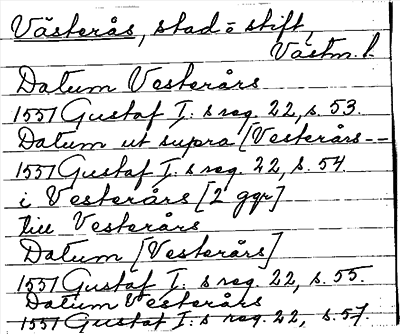 Västerås, stad o stift,
Västm. l.
Datum Vesterårs
1551 Gustaf I: s reg. 22, s. 53.
Datum ut supra [Vesterårs--
1551 Gustaf I: s reg. 22, s. 54
i Vesterårs [2 ggr]
till Vesterårs
Datum [Vesterårs]
1551 Gustaf I: s reg. 22, s. 55.
Datum Vesterårs
1551 Gustaf I: s reg. 22, s. 57.